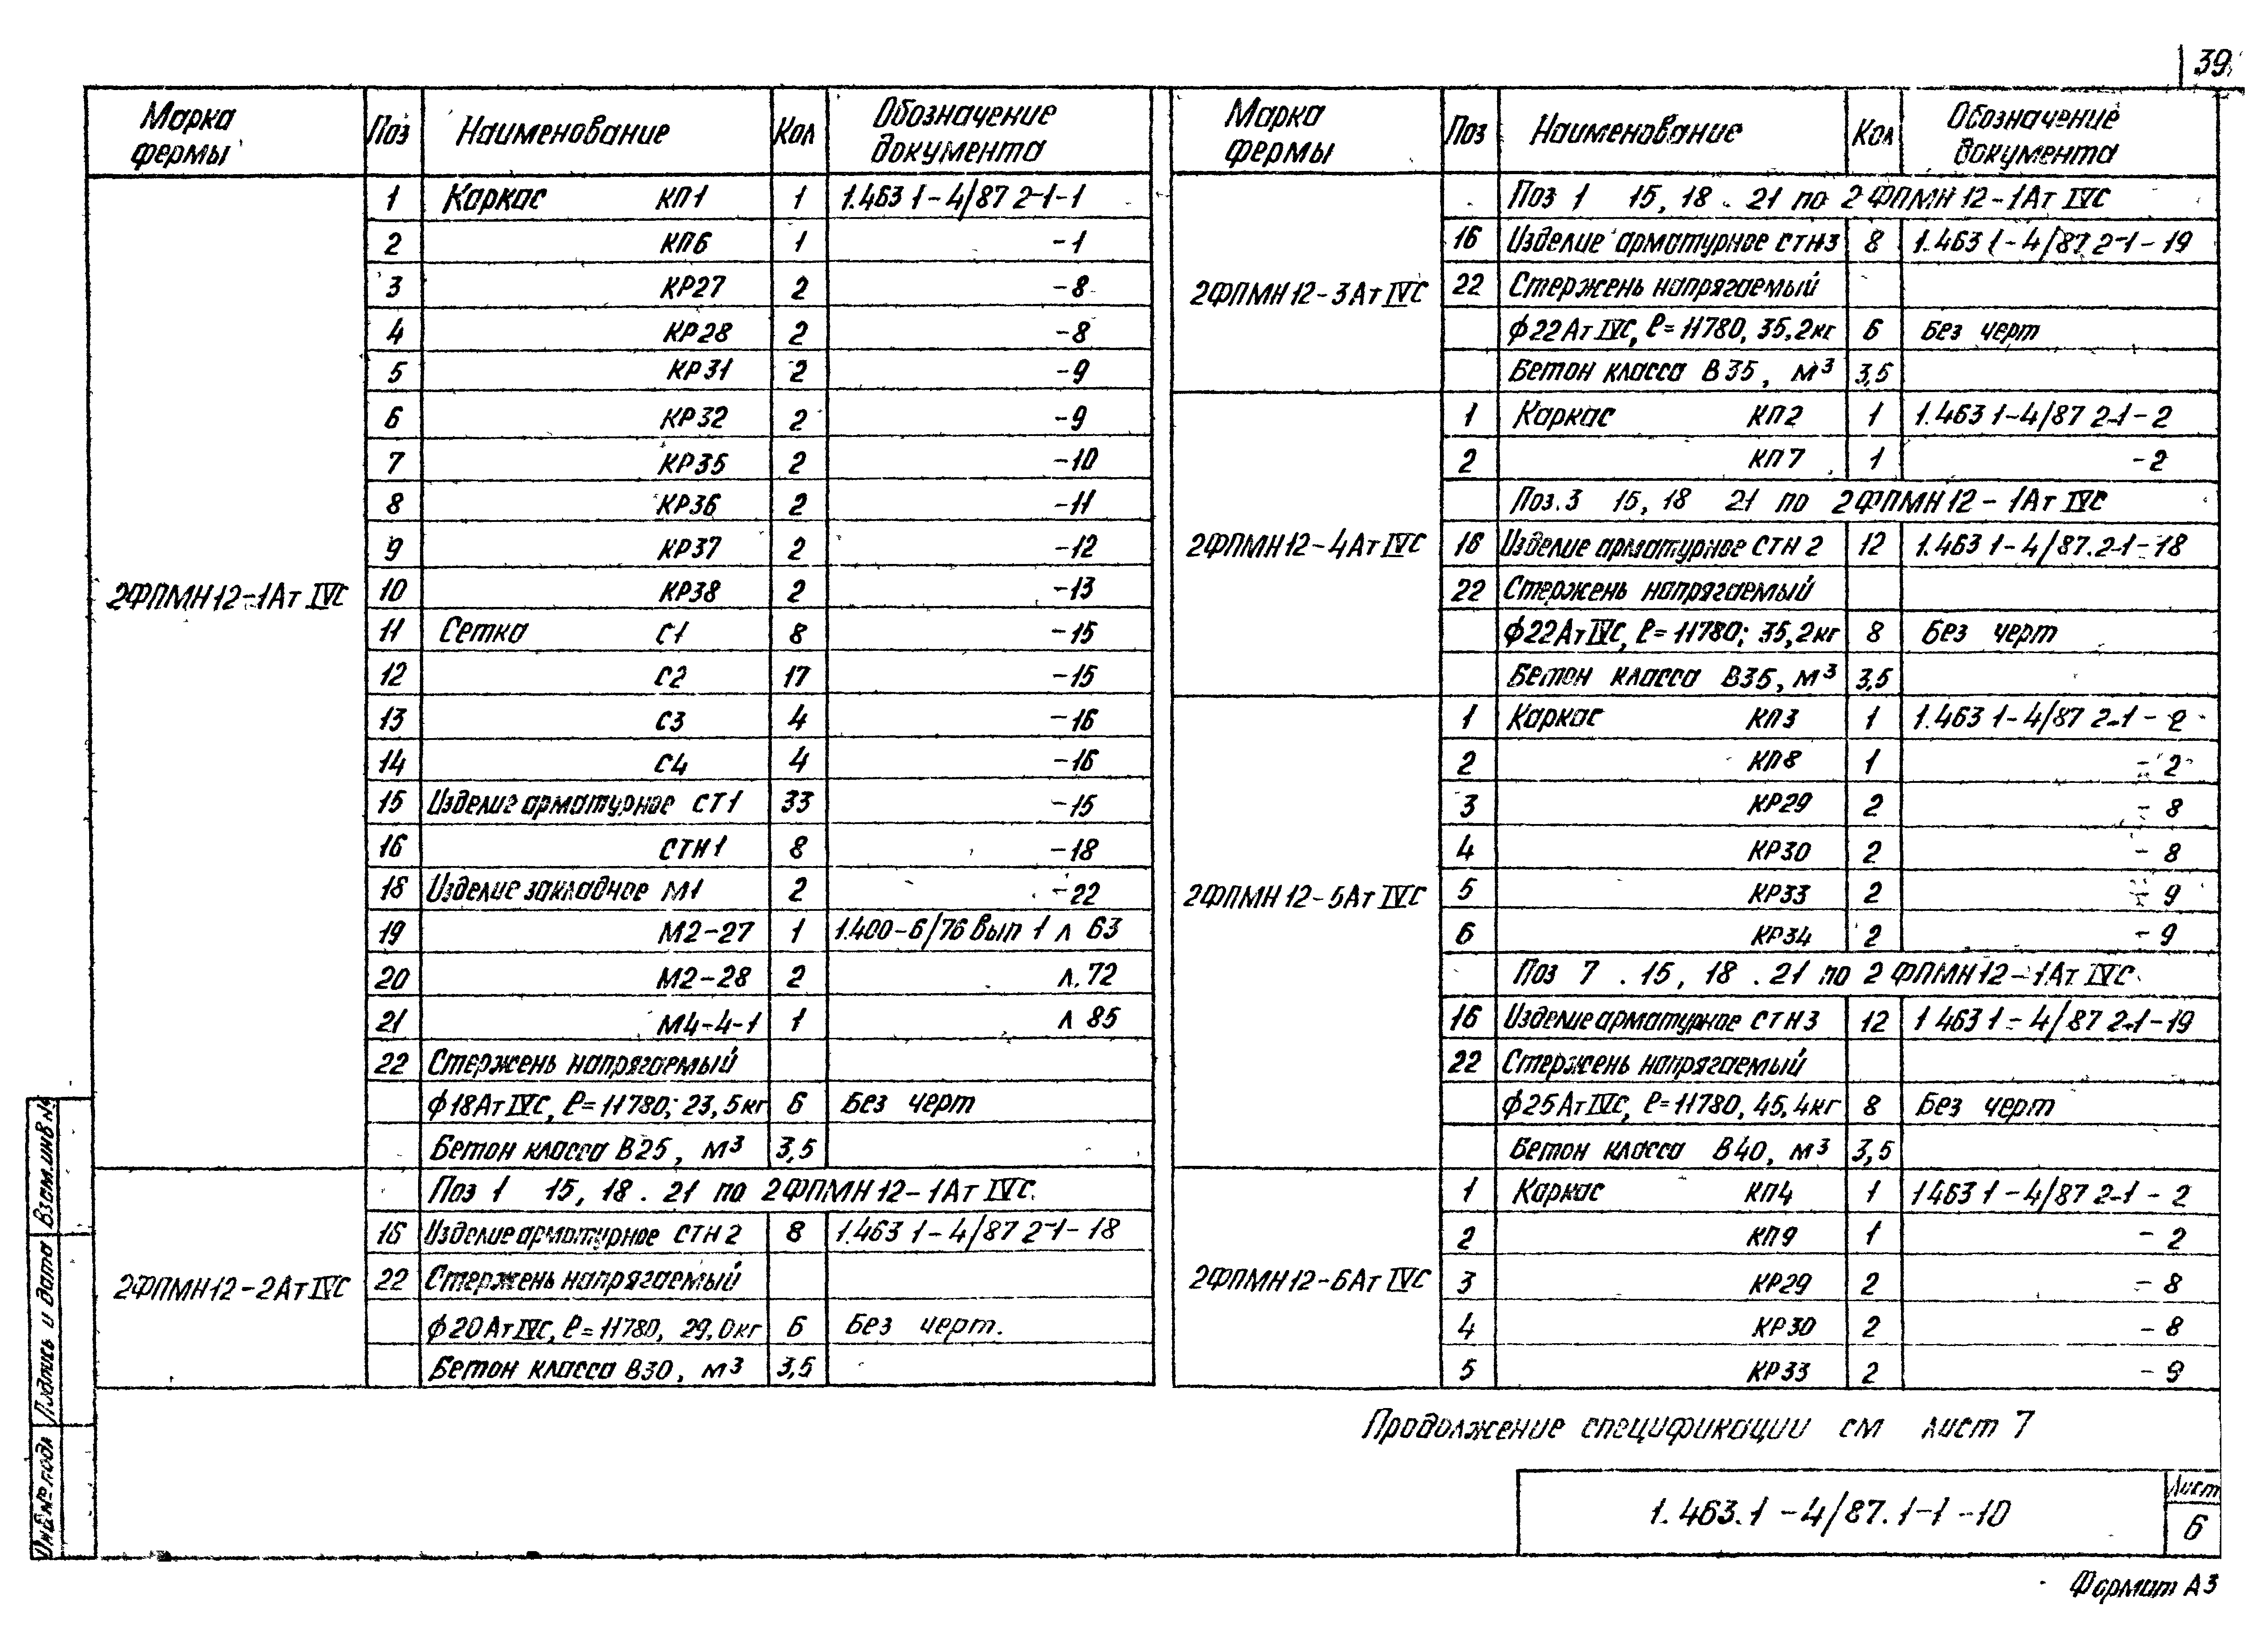 39
Марка фермы Поз Наименование Кол Обозначение документа
2ФПМН12-1АтIVС
1 Каркас КП1 1 1.463 1-4/87 2-1-1
2 КП6 1 -1
3 КР27 2 -8
4 КР28 2 -8
5 КР31 2 -9
6 КР32 2 -9
7 КР35 2 -10
8 КР36 2 -11
9 КР37 2 -12
10 КР38 2 -13
11 Сетка С1 8 -15
12 С2 17 -15
13 С3 4 -16
14 С4 4 -16
15 Изделие арматурное СТ1 33 -15
16 СТН1 8 -18
18 Изделие закладное М1 2 -22
19 М2-27 1 1.400-6/76 Вып 1 л 63
20 М2-28 2 л.72
21 М4-4-1 1 л 85
22 Стержень напрягаемый
ф18АтIVС, ℓ=11780; 23,5кг 6 Без черт
Бетон класса В25, м³ 3,5
2ФПМН12-2АтIVС
Поз 1 15, 18 . 21 по 2ФПМН12-1АтIVС
16 Изделие арматурное СТН2 8 1.463 1-4/87 2-1-18
22 Стержень напрягаемый
ф20АтIVС, ℓ=11780, 29,0кг 6 Без черт.
Бетон класса В30, м³ 3,5
Марка фермы Поз Наименование Кол Обозначение документа
2ФПМН12-3АтIVС
Поз 1 15, 18 . 21 по 2ФПМН12-1АтIVС
16 Изделие арматурное СТН3 8 1.463 1-4/87 2-1-19
22 Стержень напрягаемый
ф22АтIVС, ℓ=11780, 35,2кг 6 Без черт
Бетон класса В35, м³ 3,5
2ФПМН12-4АтIVС
1 Каркас КП2 1 1.463 1-4/87 2-1-2
2 КП7 1 -2
Поз.3 15, 18 21 по 2ФПМН12-1АтIVС
16 Изделие арматурное СТН2 12 1.463 1-4/87.2-1-18
22 Стержень напрягаемый
ф22АтIVС, ℓ=11780; 35,2кг 8 Без черт
Бетон класса В35, м³ 3,5
2ФПМН12-5АтIVС
1 Каркас КП3 1 1.463 1-4/87 2-1-2
2 КП8 1 -2
3 КР29 2 -8
4 КР30 2 -8
5 КР33 2 -9
6 КР34 2 -9
Поз 7 . 15, 18 . 21 по 2ФПМН12-1АтIVС
16 Изделие арматурное СТН3 12 1 463 1-4/87 2-1-19
22 Стержень напрягаемый
ф25АтIVС, ℓ=11780, 45,4кг 8 Без черт
Бетон класса В40, м³ 3,5
2ФПМН12-6АтIVС
1 Каркас КП4 1 1463 1-4/87 2-1-2
2 КП9 1 -2
3 КР29 2 -8
4 КР30 2 -8
5 КР33 2 -9
Продолжение спецификации см лист 7
1.463.1-4/87.1-1-10
Лист
6
Формат А3
Взам.инв №
Подпись и дата
Инв № подл